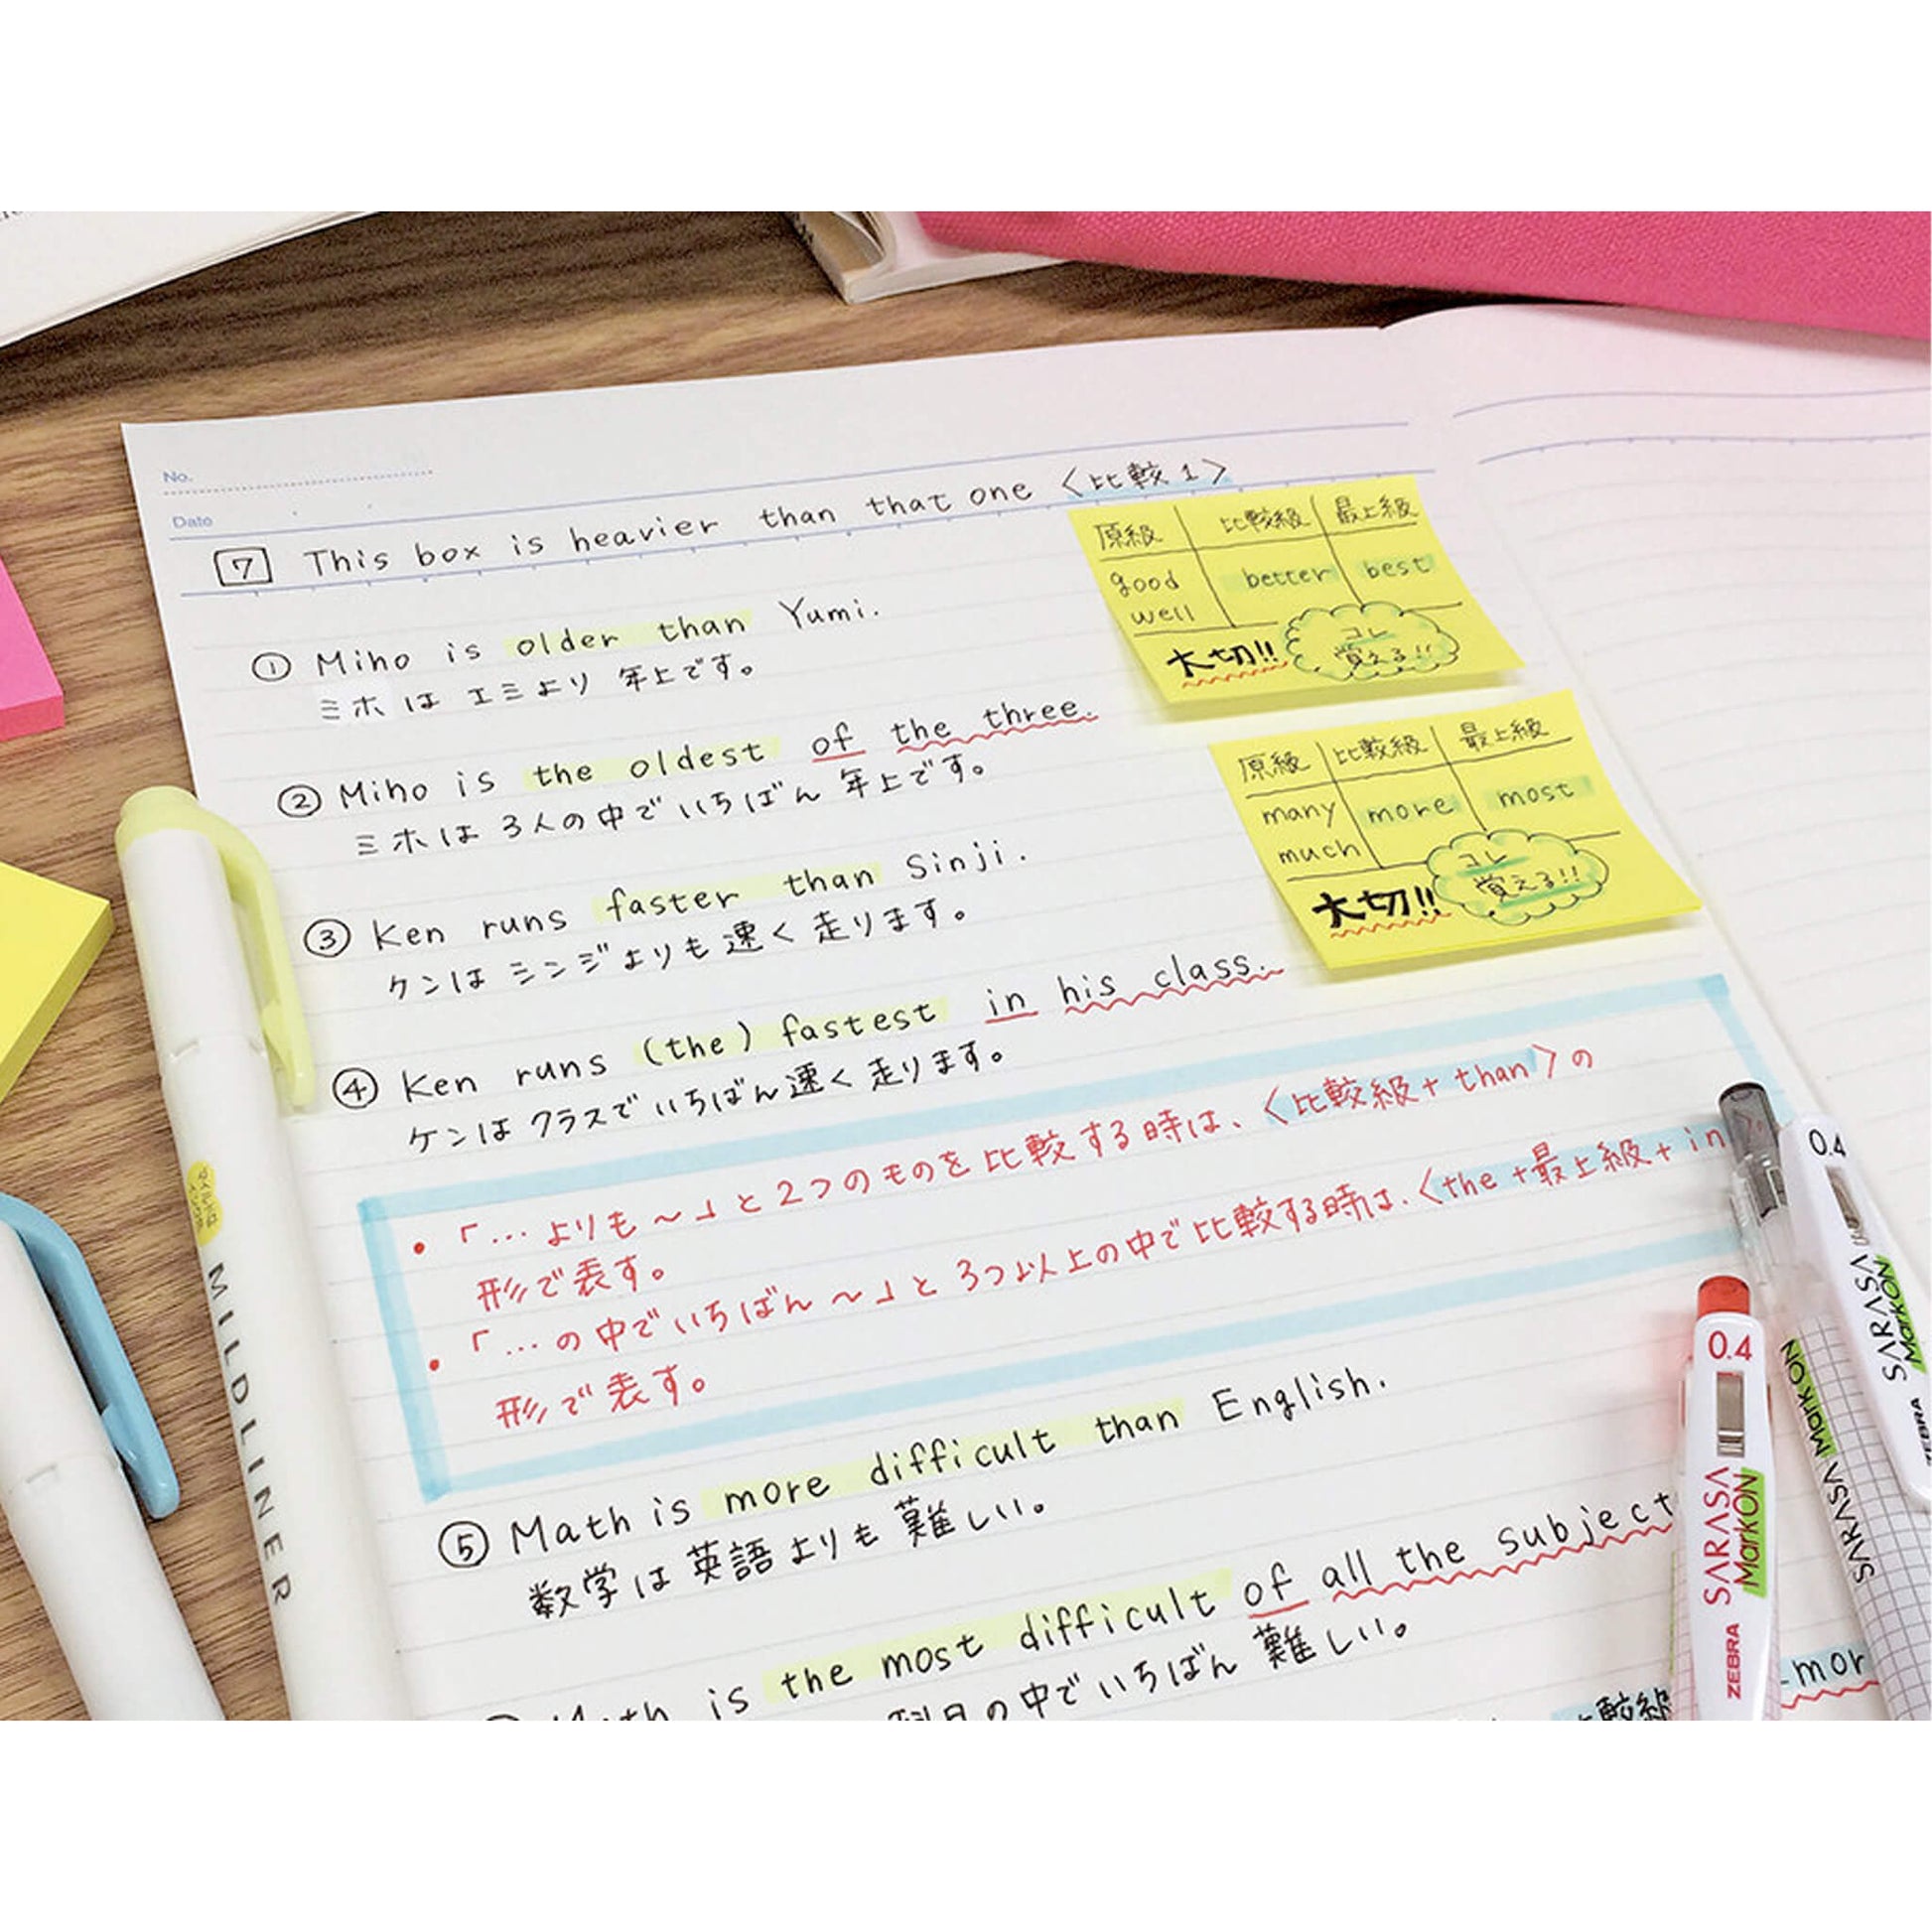 No.
Date
7 This box is heavier than that one 〈比較1〉
① Miho is older than Yumi.
ミホは エミより 年上です。
② Miho is the oldest of the three.
ミホは 3人の中で いちばん 年上です。
③ Ken runs faster than Sinji.
ケンは シンジよりも 速く 走ります。
④ Ken runs (the) fastest in his class.
ケンは クラスで いちばん速く 走ります。
原級 比較級 最上級
good better best
well
大切!! コレ
覚える!!
原級 比較級 最上級
many more most
much
大切!! コレ
覚える!!
• 「…よりも〜」と2つのものを比較する時は、〈比較級+than〉の
形で表す。
• 「…の中でいちばん〜」と3つ以上の中で比較する時は、〈the+最上級+in
形で表す。
⑤ Math is more difficult than English.
数学は 英語よりも 難しい。
Math is the most difficult of all the subject
科目の中でいちばん 難しい。
比較級
mor
MILDLINER
0.4
SARASA
MarkON
ZEBRA
0.4
SARASA
MarkON
ZEBRA
SARASA MarkON